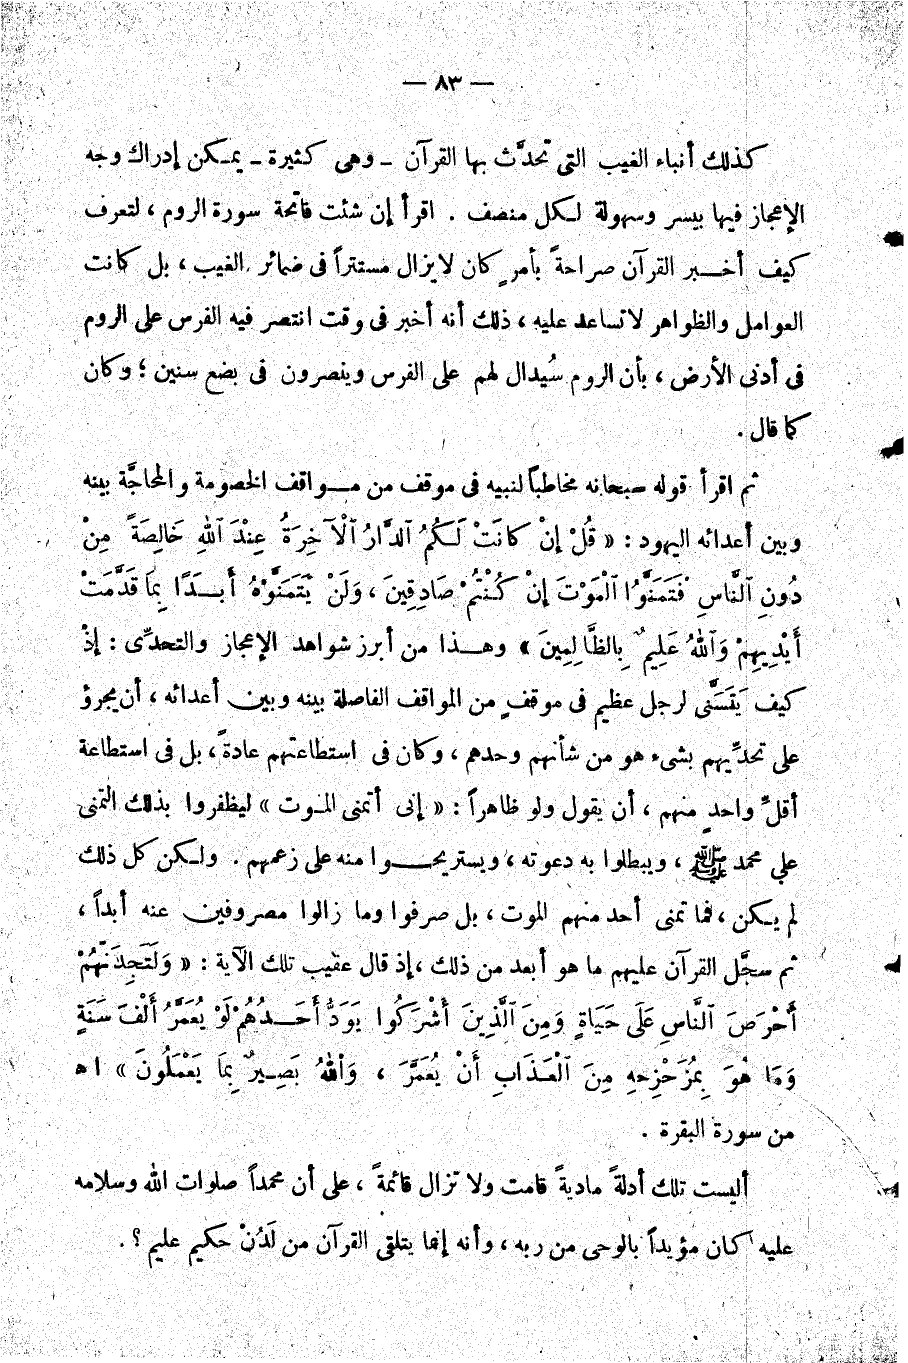 — ٨٣ —
كذلك أنباء الغيب التى تحدَّث بها القرآن - وهى كثيرة - يمكن إدراك وجه
الإعجاز فيها بيسر وسهولة لكل منصف . اقرأ إن شئت فاتحة سورة الروم ، لتعرف
كيف أخبر القرآن صراحةً بأمرٍ كان لايزال مستتراً فى ضمائر الغيب ، بل كانت
العوامل والظواهر لا تساعد عليه ، ذلك أنه أخبر فى وقت انتصر فيه الفرس على الروم
فى أدنى الأرض ، بأن الروم سُيدال لهم على الفرس وينصرون فى بضع سنين ؛ وكان
كما قال .
ثم اقرأ قوله سبحانه مخاطباً لنبيه فى موقف من مواقف الخصومة والمحاجَّة بينه
وبين أعدائه اليهود : « قُلْ إِنْ كَانَتْ لَكُمُ ٱلدَّارُ ٱلْآخِرَةُ عِنْدَ ٱللهِ خَالِصَةً مِنْ
دُونِ ٱلنَّاسِ فَتَمَنَّوُا ٱلْمَوْتَ إِنْ كُنْتُمْ صَادِقِينَ ، وَلَنْ يَتَمَنَّوْهُ أَبَدًا بِمَا قَدَّمَتْ
أَيْدِيهِمْ وَٱللهُ عَلِيمٌ بِالظَّالِمِينَ » وهذا من أبرز شواهد الإعجاز والتحدِّى : إذْ
كيف يَتَسَنَّى لرجل عظيم فى موقفٍ من المواقف الفاصلة بينه وبين أعدائه ، أن يجرؤ
على تحدِّيهم بشىء هو من شأنهم وحدهم ، وكان فى استطاعتهم عادةً ، بل فى استطاعة
أقلِّ واحدٍ منهم ، أن يقول ولو ظاهراً : « إنى أتمنى الموت » ليظفروا بذلك التمنى
على محمد ﷺ ، ويبطلوا به دعوته ، ويستريحوا منه على زعمهم . ولكن كل ذلك
لم يكن ، فما تمنى أحد منهم الموت ، بل صرفوا وما زالوا مصروفين عنه أبداً ،
ثم سجَّل القرآن عليهم ما هو أبعد من ذلك ، إذ قال عقيب تلك الآية : « وَلَتَجِدَنَّهُمْ
أَحْرَصَ ٱلنَّاسِ عَلَى حَيَاةٍ وَمِنَ ٱلَّذِينَ أَشْرَكُوا يَوَدُّ أَحَدُهُمْ لَوْ يُعَمَّرُ أَلْفَ سَنَةٍ
وَمَا هُوَ بِمُزَحْزِحِهِ مِنَ ٱلْعَذَابِ أَنْ يُعَمَّرَ ، وَٱللهُ بَصِيرٌ بِمَا يَعْمَلُونَ » ا ه
من سورة البقرة .
أليست تلك أدلةً ماديةً قامت ولا تزال قائمةً ، على أن محمداً صلوات الله وسلامه
عليه كان مؤيداً بالوحى من ربه ، وأنه إنما يتلقى القرآن من لَدُنْ حكيم عليم ؟ .